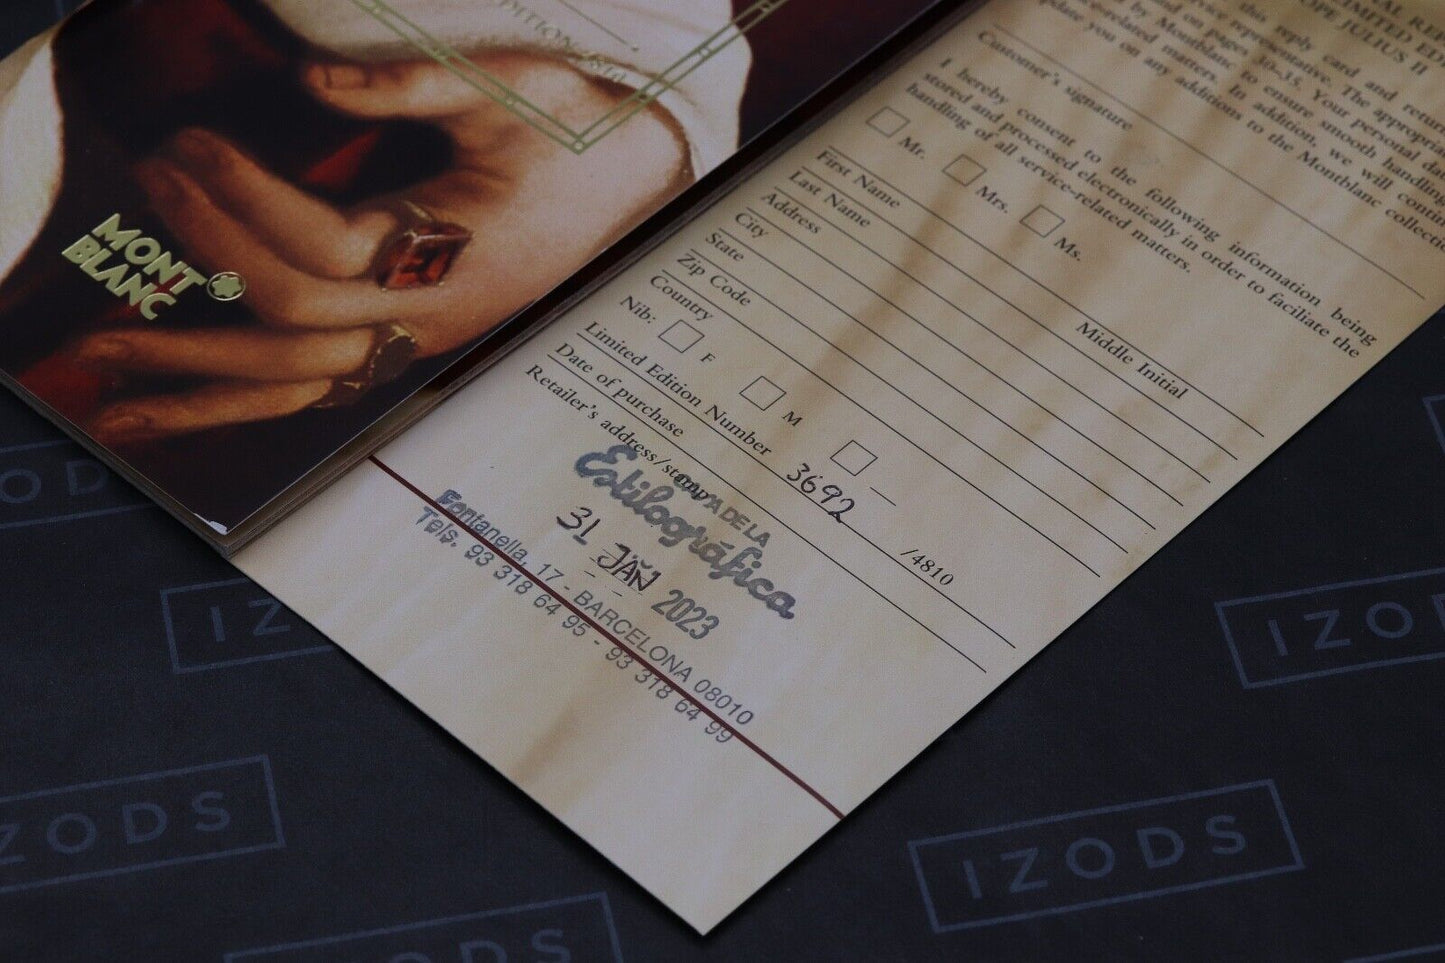 EDITION
MONT
BLANC
LIMITED EDITION
POPE JULIUS II
this reply card and return
service representative. The appropriate
and on pages 30–35. Your personal data
by Montblanc to ensure smooth handling
-related matters. In addition, we will
update you on any additions to the Montblanc
Customer's signature
I hereby consent to the following information being
stored and processed electronically in order to faciliate the
handling of all service-related matters.
Mr.
Mrs.
Ms.
First Name
Middle Initial
Last Name
Address
City
State
Zip Code
Country
Nib:
F
M
Limited Edition Number 3692 /4810
Date of purchase
Retailer's address/stamp
DE LA
Estilográfica
31 JAN 2023
Fontanella, 17 - BARCELONA 08010
Tels. 93 318 64 95 - 93 318 64 99
IZODS
IZODS
IZODS